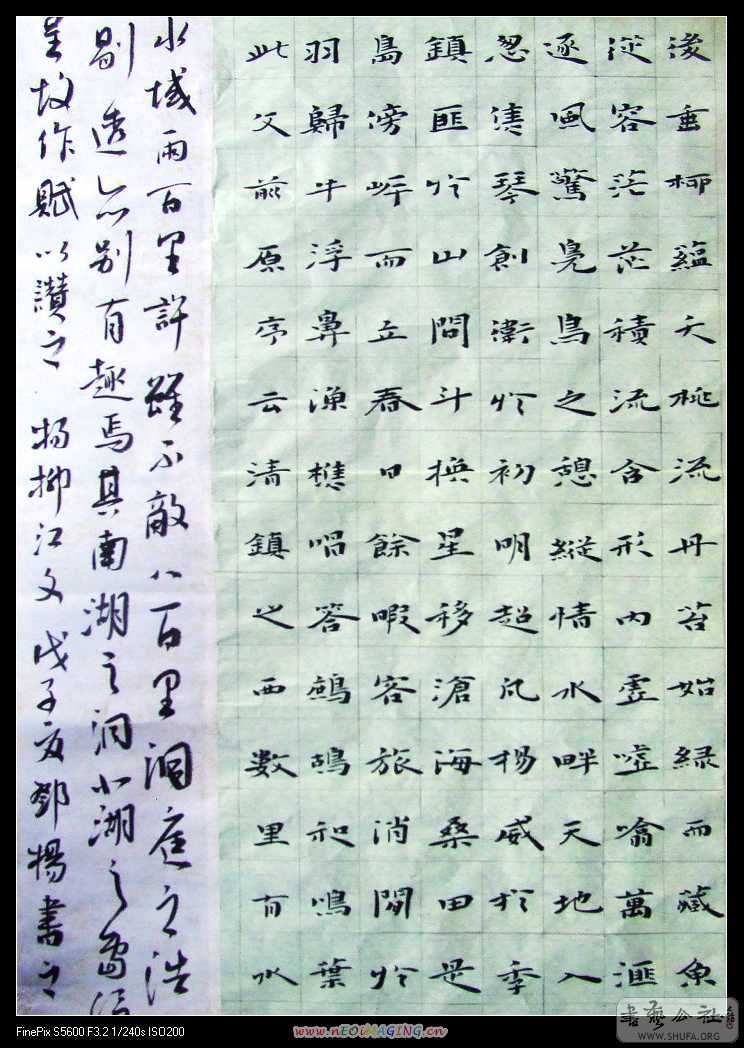 垂柳蘊夭桃流丹苔始緑而藏魚
容茫茫積流含形內虛噓噏萬滙
逐風驚鳧鳥之憩縱情水畔天地入
忽琴創衛於初明超凡楊威於季
鎮匪於山問斗換星移滄海桑田是
島滂岸而立春日餘暇容旅消閒於
羽歸牛浮鼻漁樵唱答鷓鴣和鳴葉
此父前原序云清鎮之西數里有水
水域兩百里許雖不敵八百里洞庭之浩
剔透亦別有趣焉其南湖之洞北湖之島
故作賦以讚之 楊柳江文 戊子夏鄧楊書之
書藝公社
WWW.SHUFA.ORG
FinePix S5600 F3.2 1/240s ISO200
www.nEOiMAGING.cn